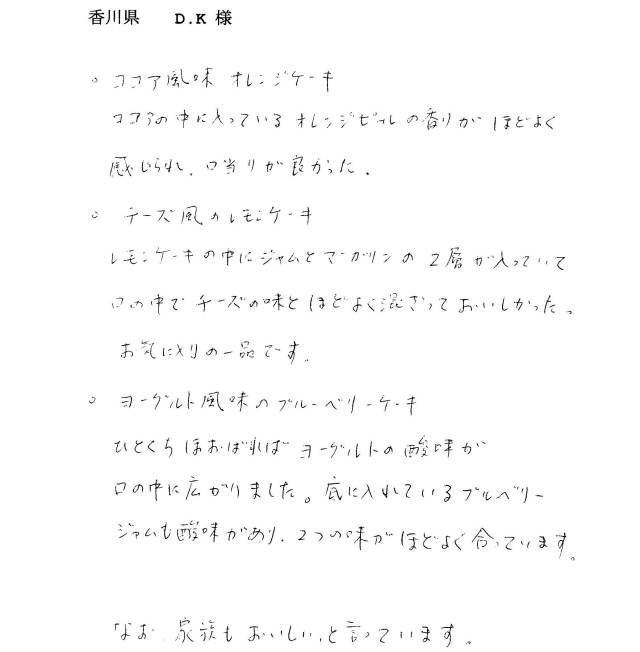 香川県　D.K 様
○ ココア風味 オレンジケーキ
ココアの中に入っている オレンジピールの香りが ほどよく
感じられ、口当りが良かった.
○ チーズ風のレモンケーキ
レモンケーキの中にジャムとマーガリンの2層が入っていて
口の中で チーズの味と ほどよく混ざって おいしかった。
お気に入りの一品です。
○ ヨーグルト風味のブルーベリーケーキ
ひとくち ほおばれば ヨーグルトの酸味が
口の中に広がりました。底に入れているブルベリー
ジャムも酸味があり、2つの味が ほどよく合っています。
なお 家族も おいしい、と言っています。